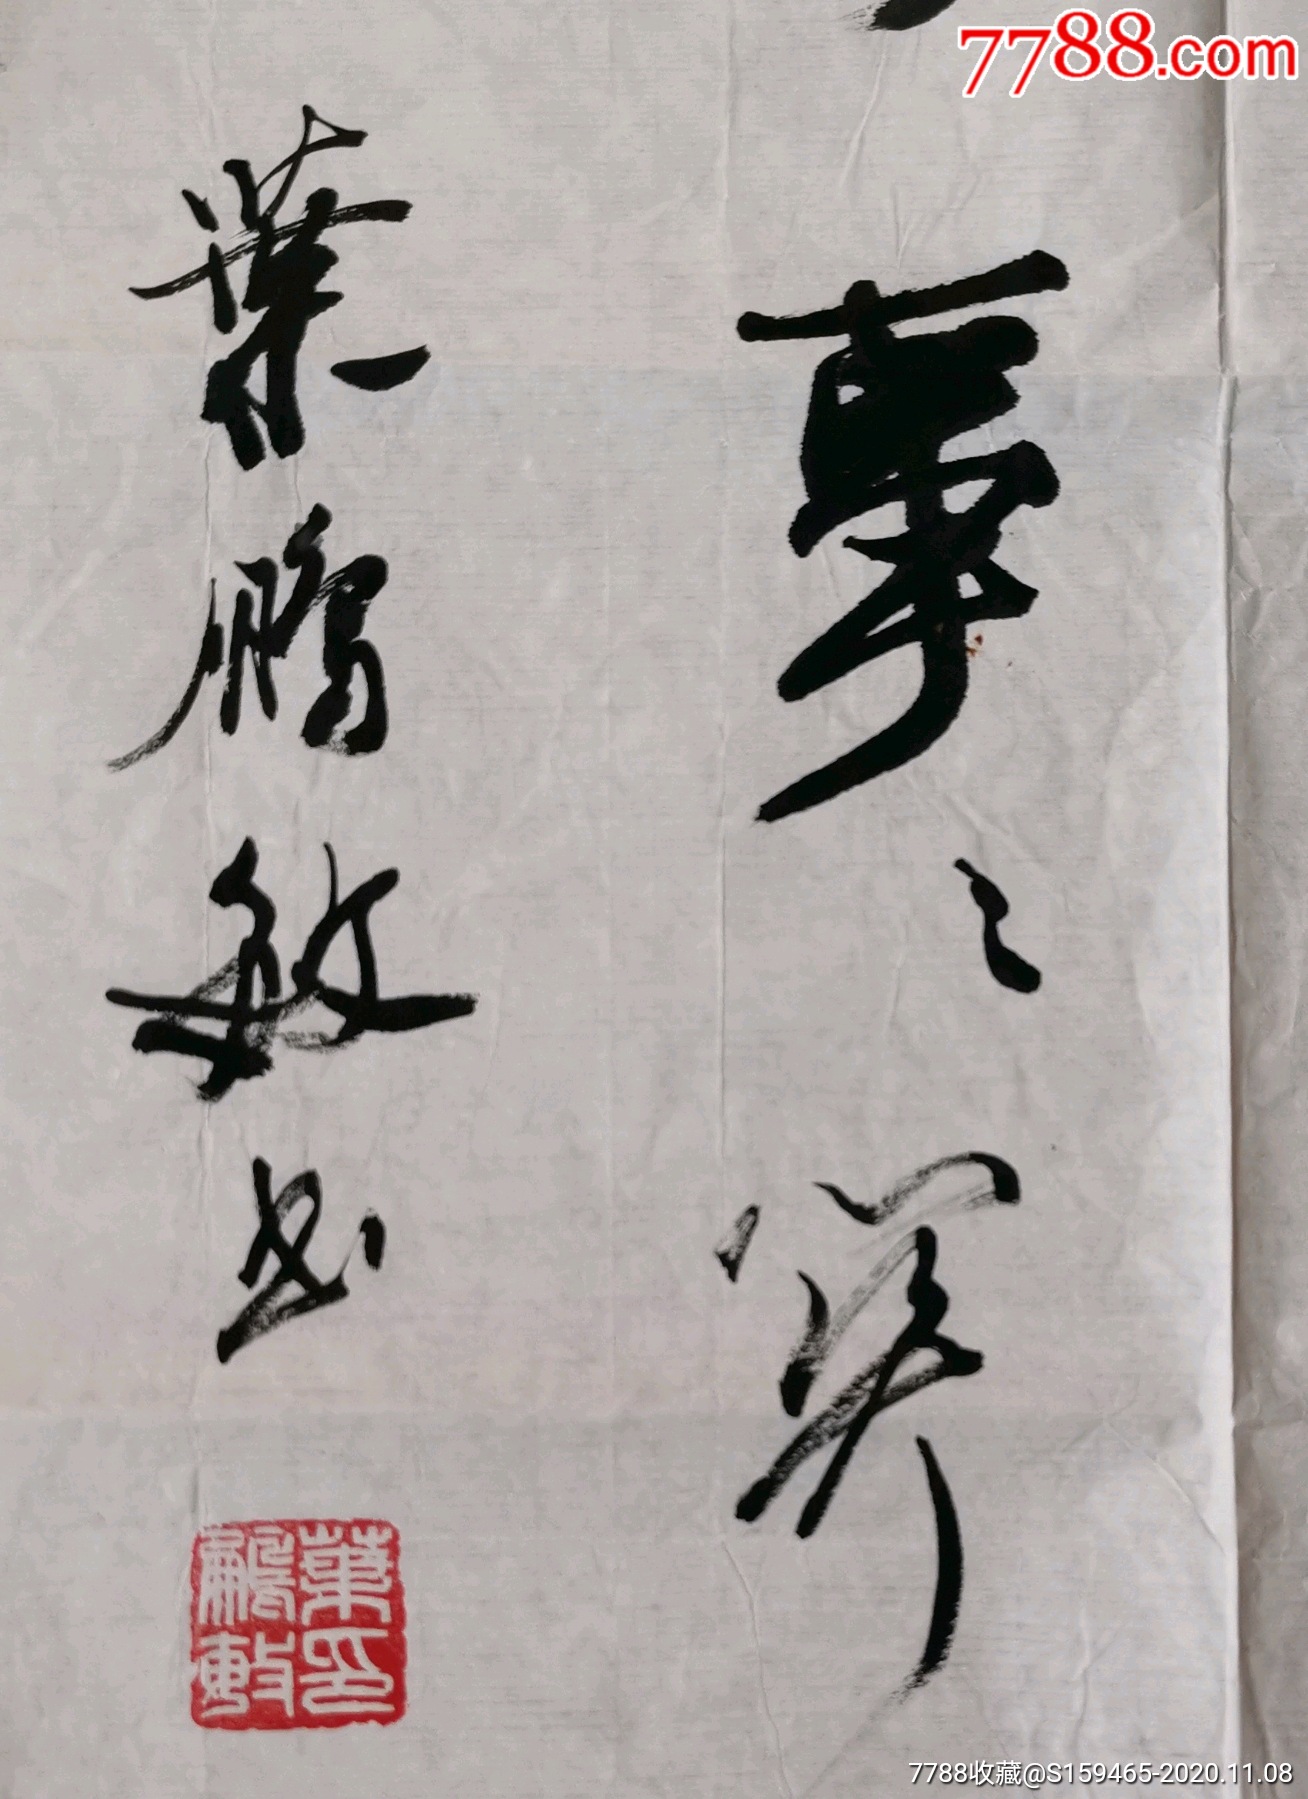 7788.com
事
葉鵬敏书
葉印
鵬敏
7788收藏@S159465-2020.11.08